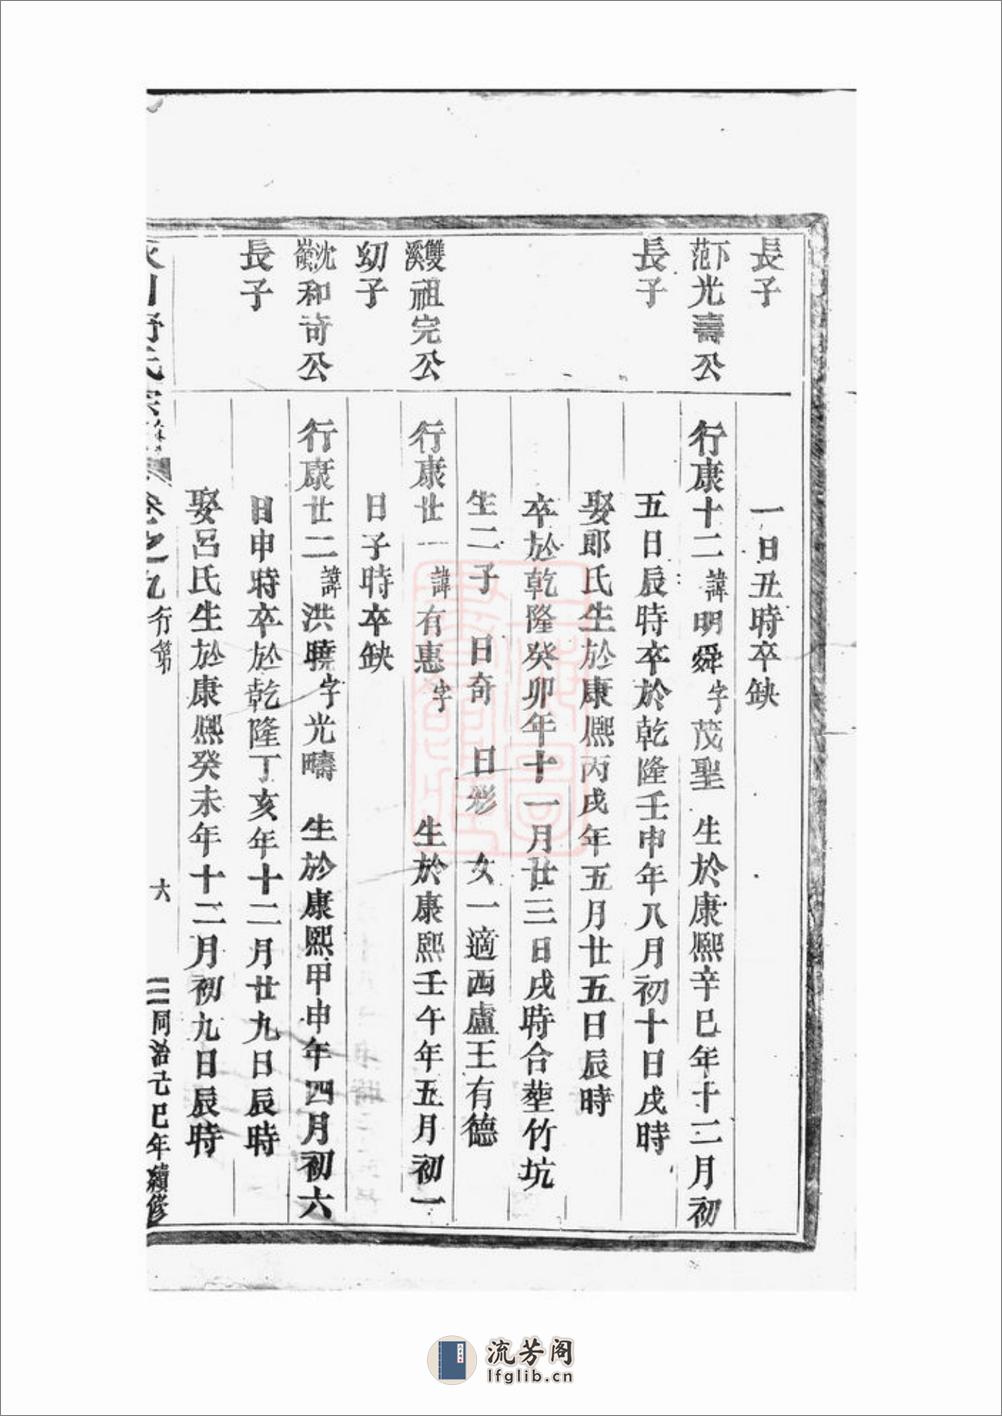 長子
一日丑時卒缺
下范光壽公
行康十二諱明舜字茂聖 生於康熙辛巳年十二月初
長子
五日辰時卒於乾隆壬申年八月初十日戌時
娶郎氏生於康熙丙戌年五月廿五日辰時
卒於乾隆癸卯年十一月廿三日戌時合塟竹坑
生二子 日奇 日彩 女一適西盧王有德
雙溪祖完公
行康廿一諱有惠字 生於康熙壬午年五月初一
幼子
日子時卒缺
沈嶺和奇公
行康廿二諱洪曉字光疇 生於康熙甲申年四月初六
長子
日申時卒於乾隆丁亥年十二月廿九日辰時
娶呂氏生於康熙癸未年十二月初九日辰時
川舒氏宗 卷之九 行第 六 同治己巳年續修
流芳阁
lfglib.cn